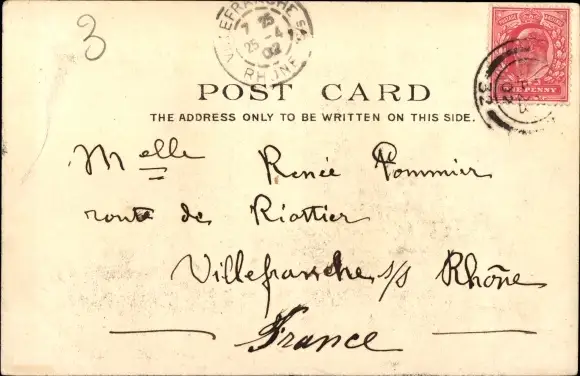 3
VILLEFRANCHE S/S
7 25
25 - 4
02
RHÔNE
POSTAGE REVENUE
ONE PENNY
POST CARD
THE ADDRESS ONLY TO BE WRITTEN ON THIS SIDE.
Melle Renée Pommier
route de Riottier
Villefranche s/s Rhône
France